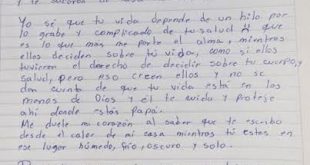 Yo sé que tu vida depende de un hilo por
lo grabe y complicado de tu salud y
es lo que más me parte el alma, y mientros
ellos deciden sobre tu vida, como si ellos
tuvieran el derecho de decidir sobre tu cuerpo y
salud, pero eso creen ellos y no se
dan cuenta de que tu vida está en las
manos de Dios y él te cuida y proteje
ahí donde estás Papá.
Me duele mi corazón al saber que te escribo
desde el calor de mi casa mientras tú estas en
ese lugar húmedo, frío, oscuro y solo.